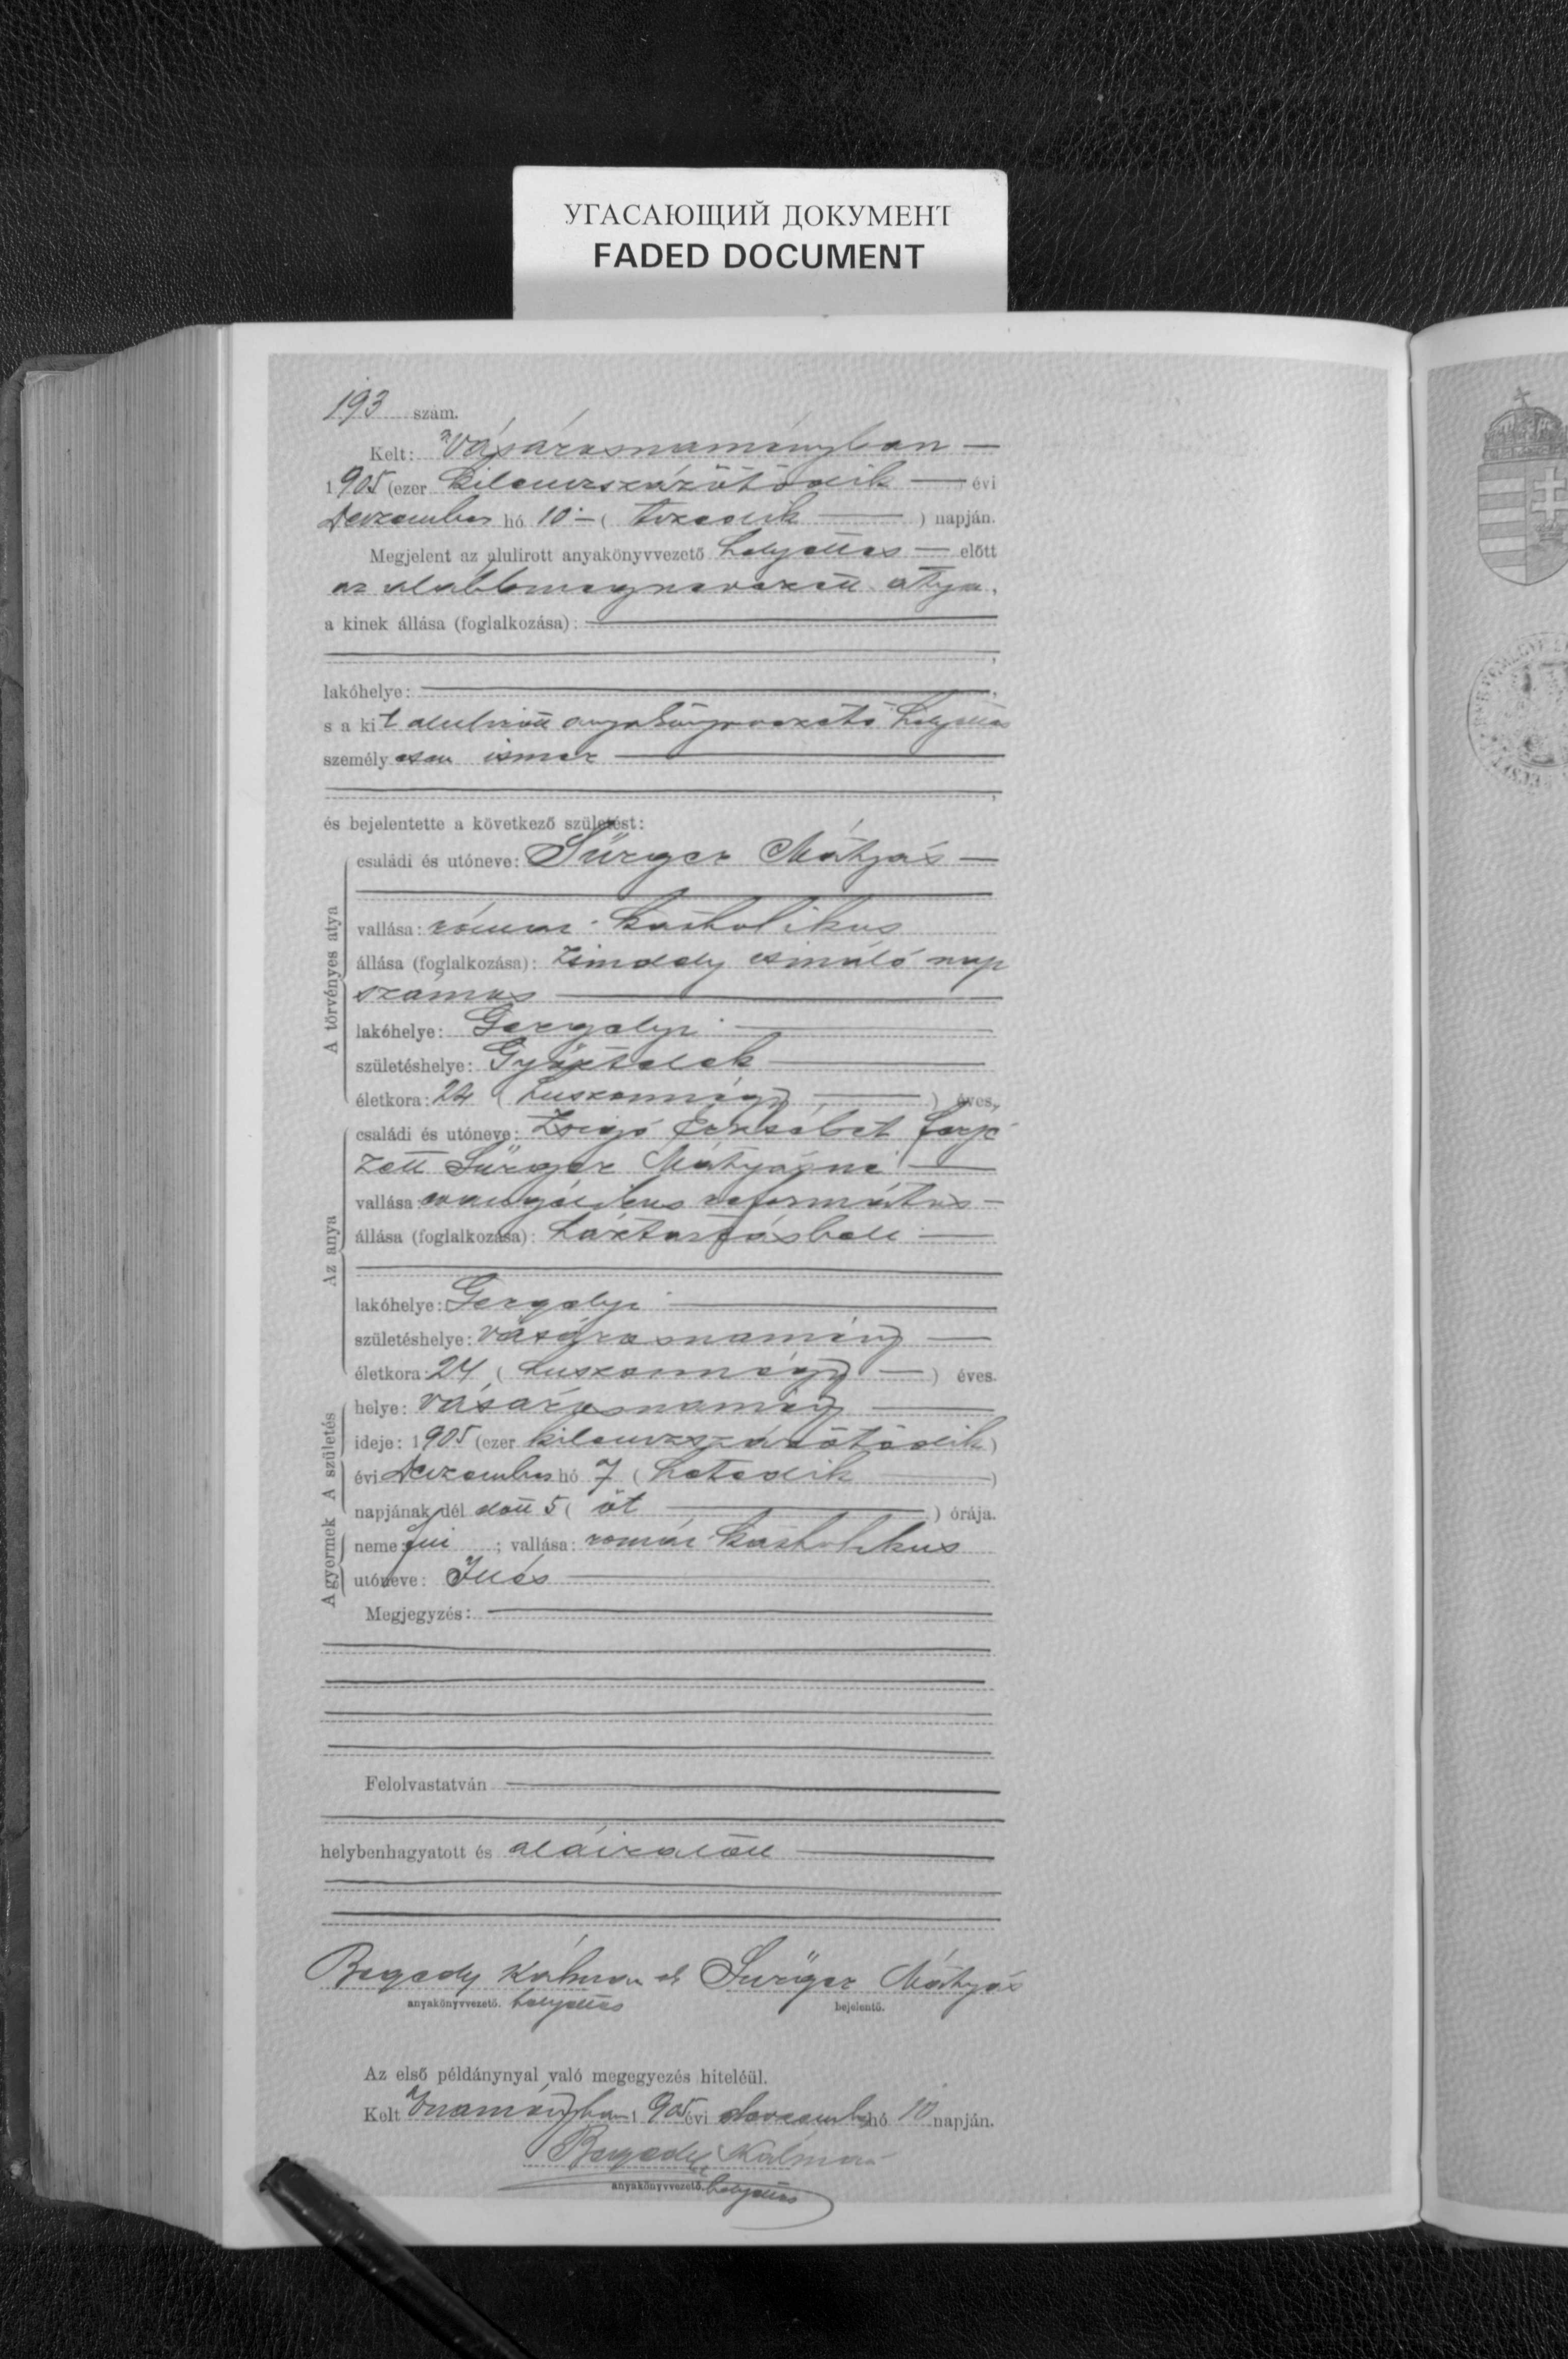 УГАСАЮЩИЙ ДОКУМЕНТ
FADED DOCUMENT
193 szám.
Kelt: Vásárosnaményban —
1905 (ezer kilenczszázötödik — évi
Deczember hó 10 — ( tizedik — ) napján.
Megjelent az alulirott anyakönyvvezető helyettes — előtt
az alább megnevezett atya,
a kinek állása (foglalkozása): —
lakóhelye: —,
s a kit alulirott anyakönyvvezető helyettes
személyesen ismer —
és bejelentette a következő születést:
A törvényes atya
családi és utóneve: Sürger Mátyás —
vallása: római katholikus
állása (foglalkozása): zsindely csináló nap
számos —
lakóhelye: Gergelyi —
születéshelye: —
életkora: 24 ( huszonnégy — ) éves,
Az anya
családi és utóneve: Erzsébet férje
zett Sürger Mátyásné —
vallása: evangélikus református —
állása (foglalkozása): háztartásbeli —
lakóhelye: Gergelyi —
születéshelye: Vásárosnamény —
életkora: 24 ( huszonnégy — ) éves.
A születés
helye: Vásárosnamény —
ideje: 1905 (ezer kilenczszázötödik)
évi Deczember hó 7 ( hetedik — )
napjának dél előtt 5 ( öt — ) órája.
A gyermek
neme: fiú ; vallása: római katholikus
utóneve: Illés —
Megjegyzés: —
Felolvastatván —
helybenhagyatott és aláiratott —
Begedy Kálmán Sürger Mátyás
anyakönyvvezető. helyettes bejelentő.
Az első példánynyal való megegyezés hiteléül.
Kelt Vnaményban 1905 évi deczember hó 10 napján.
Begedy Kálmán
anyakönyvvezető. helyettes